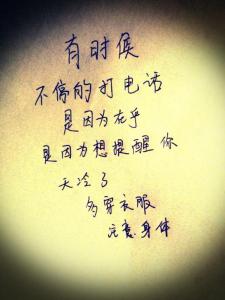 有时候
不停的打电话
是因为在乎
是因为想提醒你
天冷了
多穿衣服
注意身体